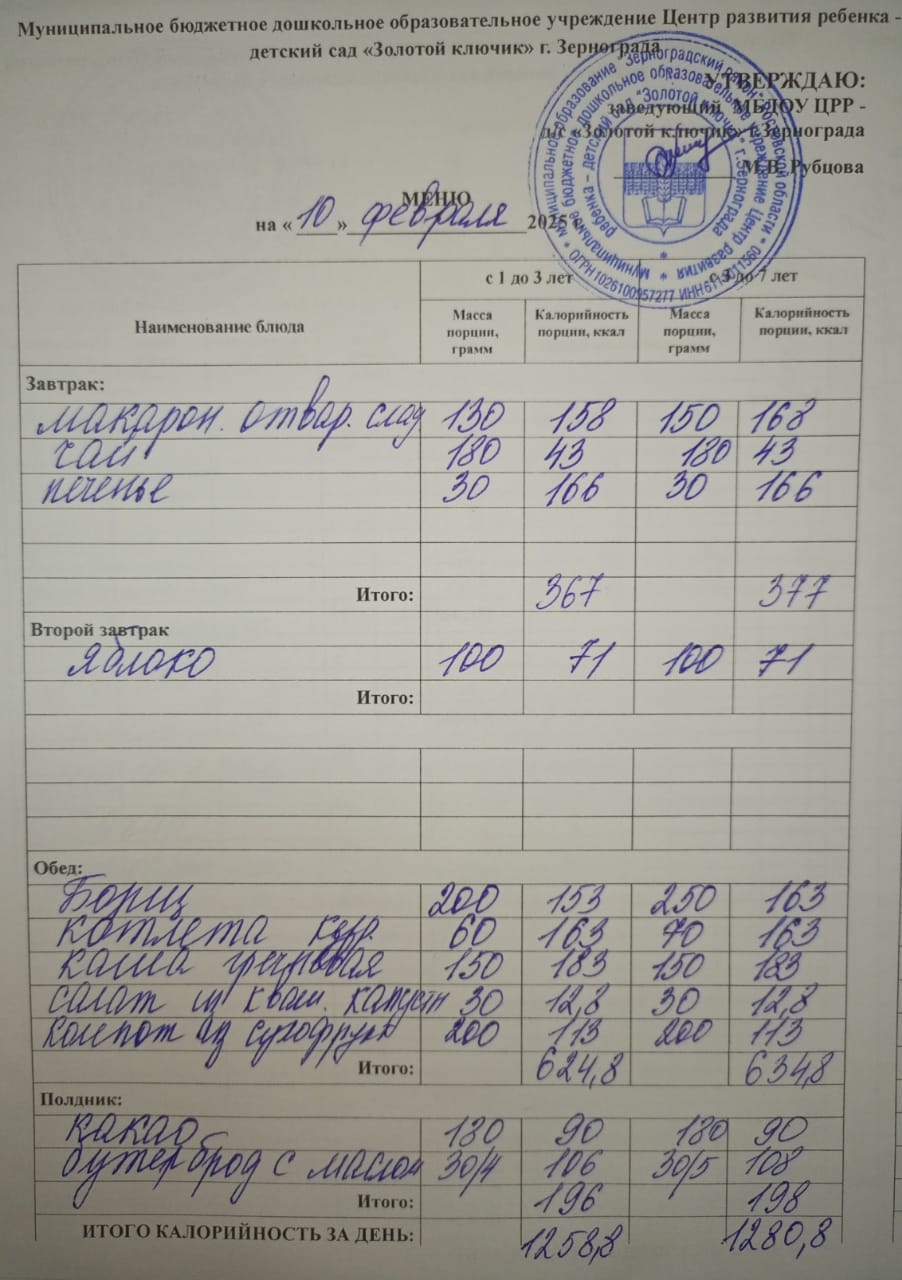 Муниципальное бюджетное дошкольное образовательное учреждение Центр развития ребенка -
детский сад «Золотой ключик» г. Зернограда
УТВЕРЖДАЮ:
заведующий МБДОУ ЦРР -
д/с «Золотой ключик» г.Зернограда
М.В. Рубцова
МЕНЮ
на «10» февраля 2025 г.
Наименование блюда
с 1 до 3 лет с 3 до 7 лет
Масса порции, грамм Калорийность порции, ккал Масса порции, грамм Калорийность порции, ккал
Завтрак:
макарон. отвар. слад 130 158 150 168
чай 180 43 180 43
печенье 30 166 30 166
Итого: 367 377
Второй завтрак
яблоко 100 71 100 71
Итого:
Обед:
Борщ 200 153 250 163
котлета кур. 60 163 70 163
каша гречневая 150 183 150 183
салат из кваш. капусти 30 12,8 30 12,8
компот из сухофрукт 200 113 200 113
Итого: 624,8 634,8
Полдник:
какао 180 90 180 90
бутерброд с маслом 30/4 106 30/5 108
Итого: 196 198
ИТОГО КАЛОРИЙНОСТЬ ЗА ДЕНЬ: 1258,8 1280,8